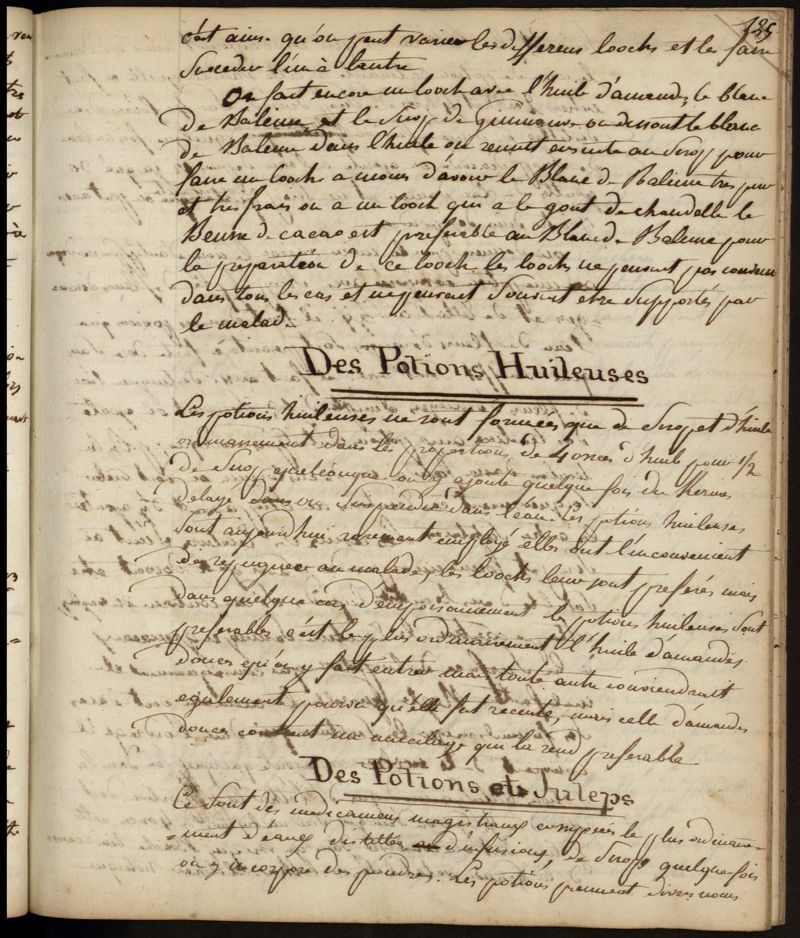 125
c'est ainsi qu'on peut varier les differens loochs et les faire
succeder l'un à l'autre
On fait encore un looch avec l'huile d'amandes, le blanc
de Baleine, et le Sirop de Guimauve on dissout le blanc
de Baleine dans l'huile on remue ensuite au Sirop pour
faire un looch a moins d'avoir le Blanc de Baleine tres pur
et tres frais on a un looch qui a le gout de chandelle le
Beurre de cacao est preferable au Blanc de Baleine pour
la preparation de ce looch. les loochs ne peuvent pas convenir
dans tous les cas et ne peuvent souvent etre supportés par
le malade
Des Potions Huileuses
Les potions huileuses ne sont formées que de Sirop et d'huile
ordinairement dans les proportions de 4 onces d'huile pour 1/2
de Sirop quelconque on y ajoute quelque fois du Kermes
delayé dans ou suspendu dans l'eau. les potions huileuses
sont aujourd'hui rarement employé elles ont l'inconvenient
de repugner au malades, les loochs leur sont preferés mais
dans quelque cas d'empoisonnement les potions huileuses sont
preferables c'est le plus ordinairement l'huile d'amandes
douces qu'on y fait entrer mais toute autre conviendrait
egalement pourvu qu'elle fut recente, mais celle d'amandes
douces contient un mucilage qui la rend preferable
Des Potions et Juleps
Ce sont des medicamens magistraux composés le plus ordinaire-
=ment d'eaux distillés ou d'infusions, de Sirops quelque fois
on y incorpore des poudres. Les potions prennent divers noms